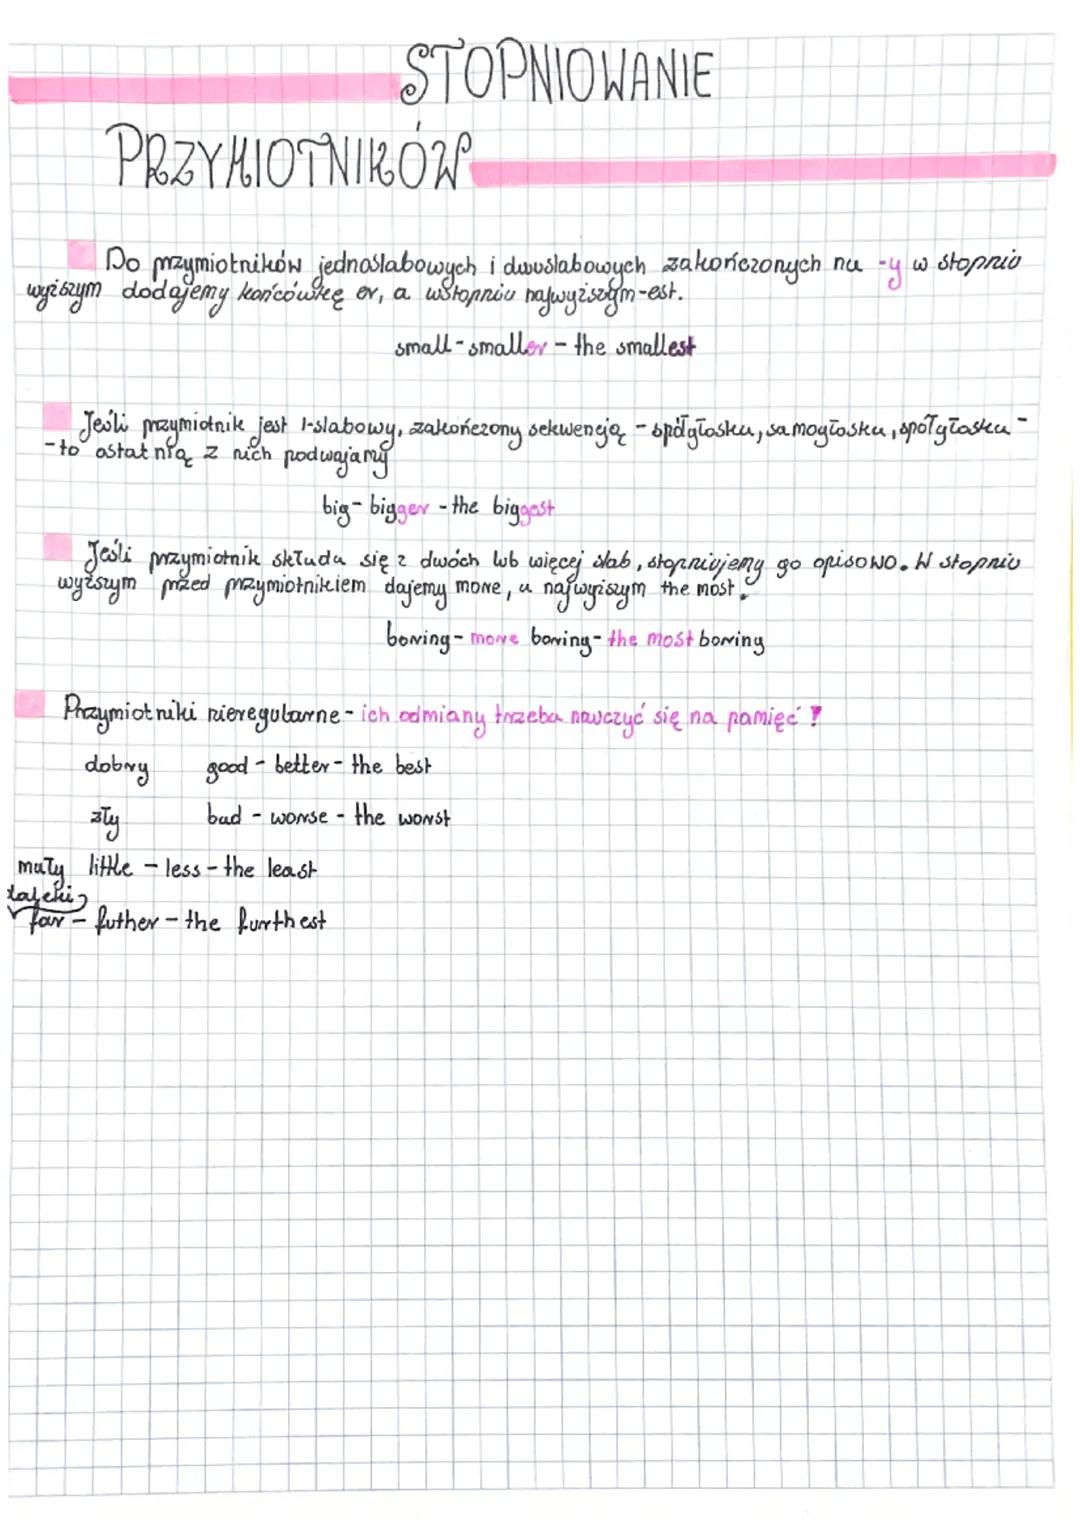 STOPNIOWANIE
PRZYMIOTNIKÓW
Do przymiotników jednosłabowych i dwusłabowych zakończonych na -y w stopniu
wyższym dodajemy końcówkę er, a w stopniu najwyższym -est.
small - smaller - the smallest
Jeśli przymiotnik jest 1-słabowy, zakończony sekwencją - spółgłoska, samogłoska, spółgłoska -
- to ostatnią z nich podwajamy
big - bigger - the biggest
Jeśli przymiotnik składa się z dwóch lub więcej słab, stopniujemy go opisowo. W stopniu
wyższym przed przymiotnikiem dajemy more, a najwyższym the most.
boring - more boring - the most boring
Przymiotniki nieregularne - ich odmiany trzeba nauczyć się na pamięć!
dobry good - better - the best
zły bad - worse - the worst
mały little - less - the least
daleki
far - futher - the furthest